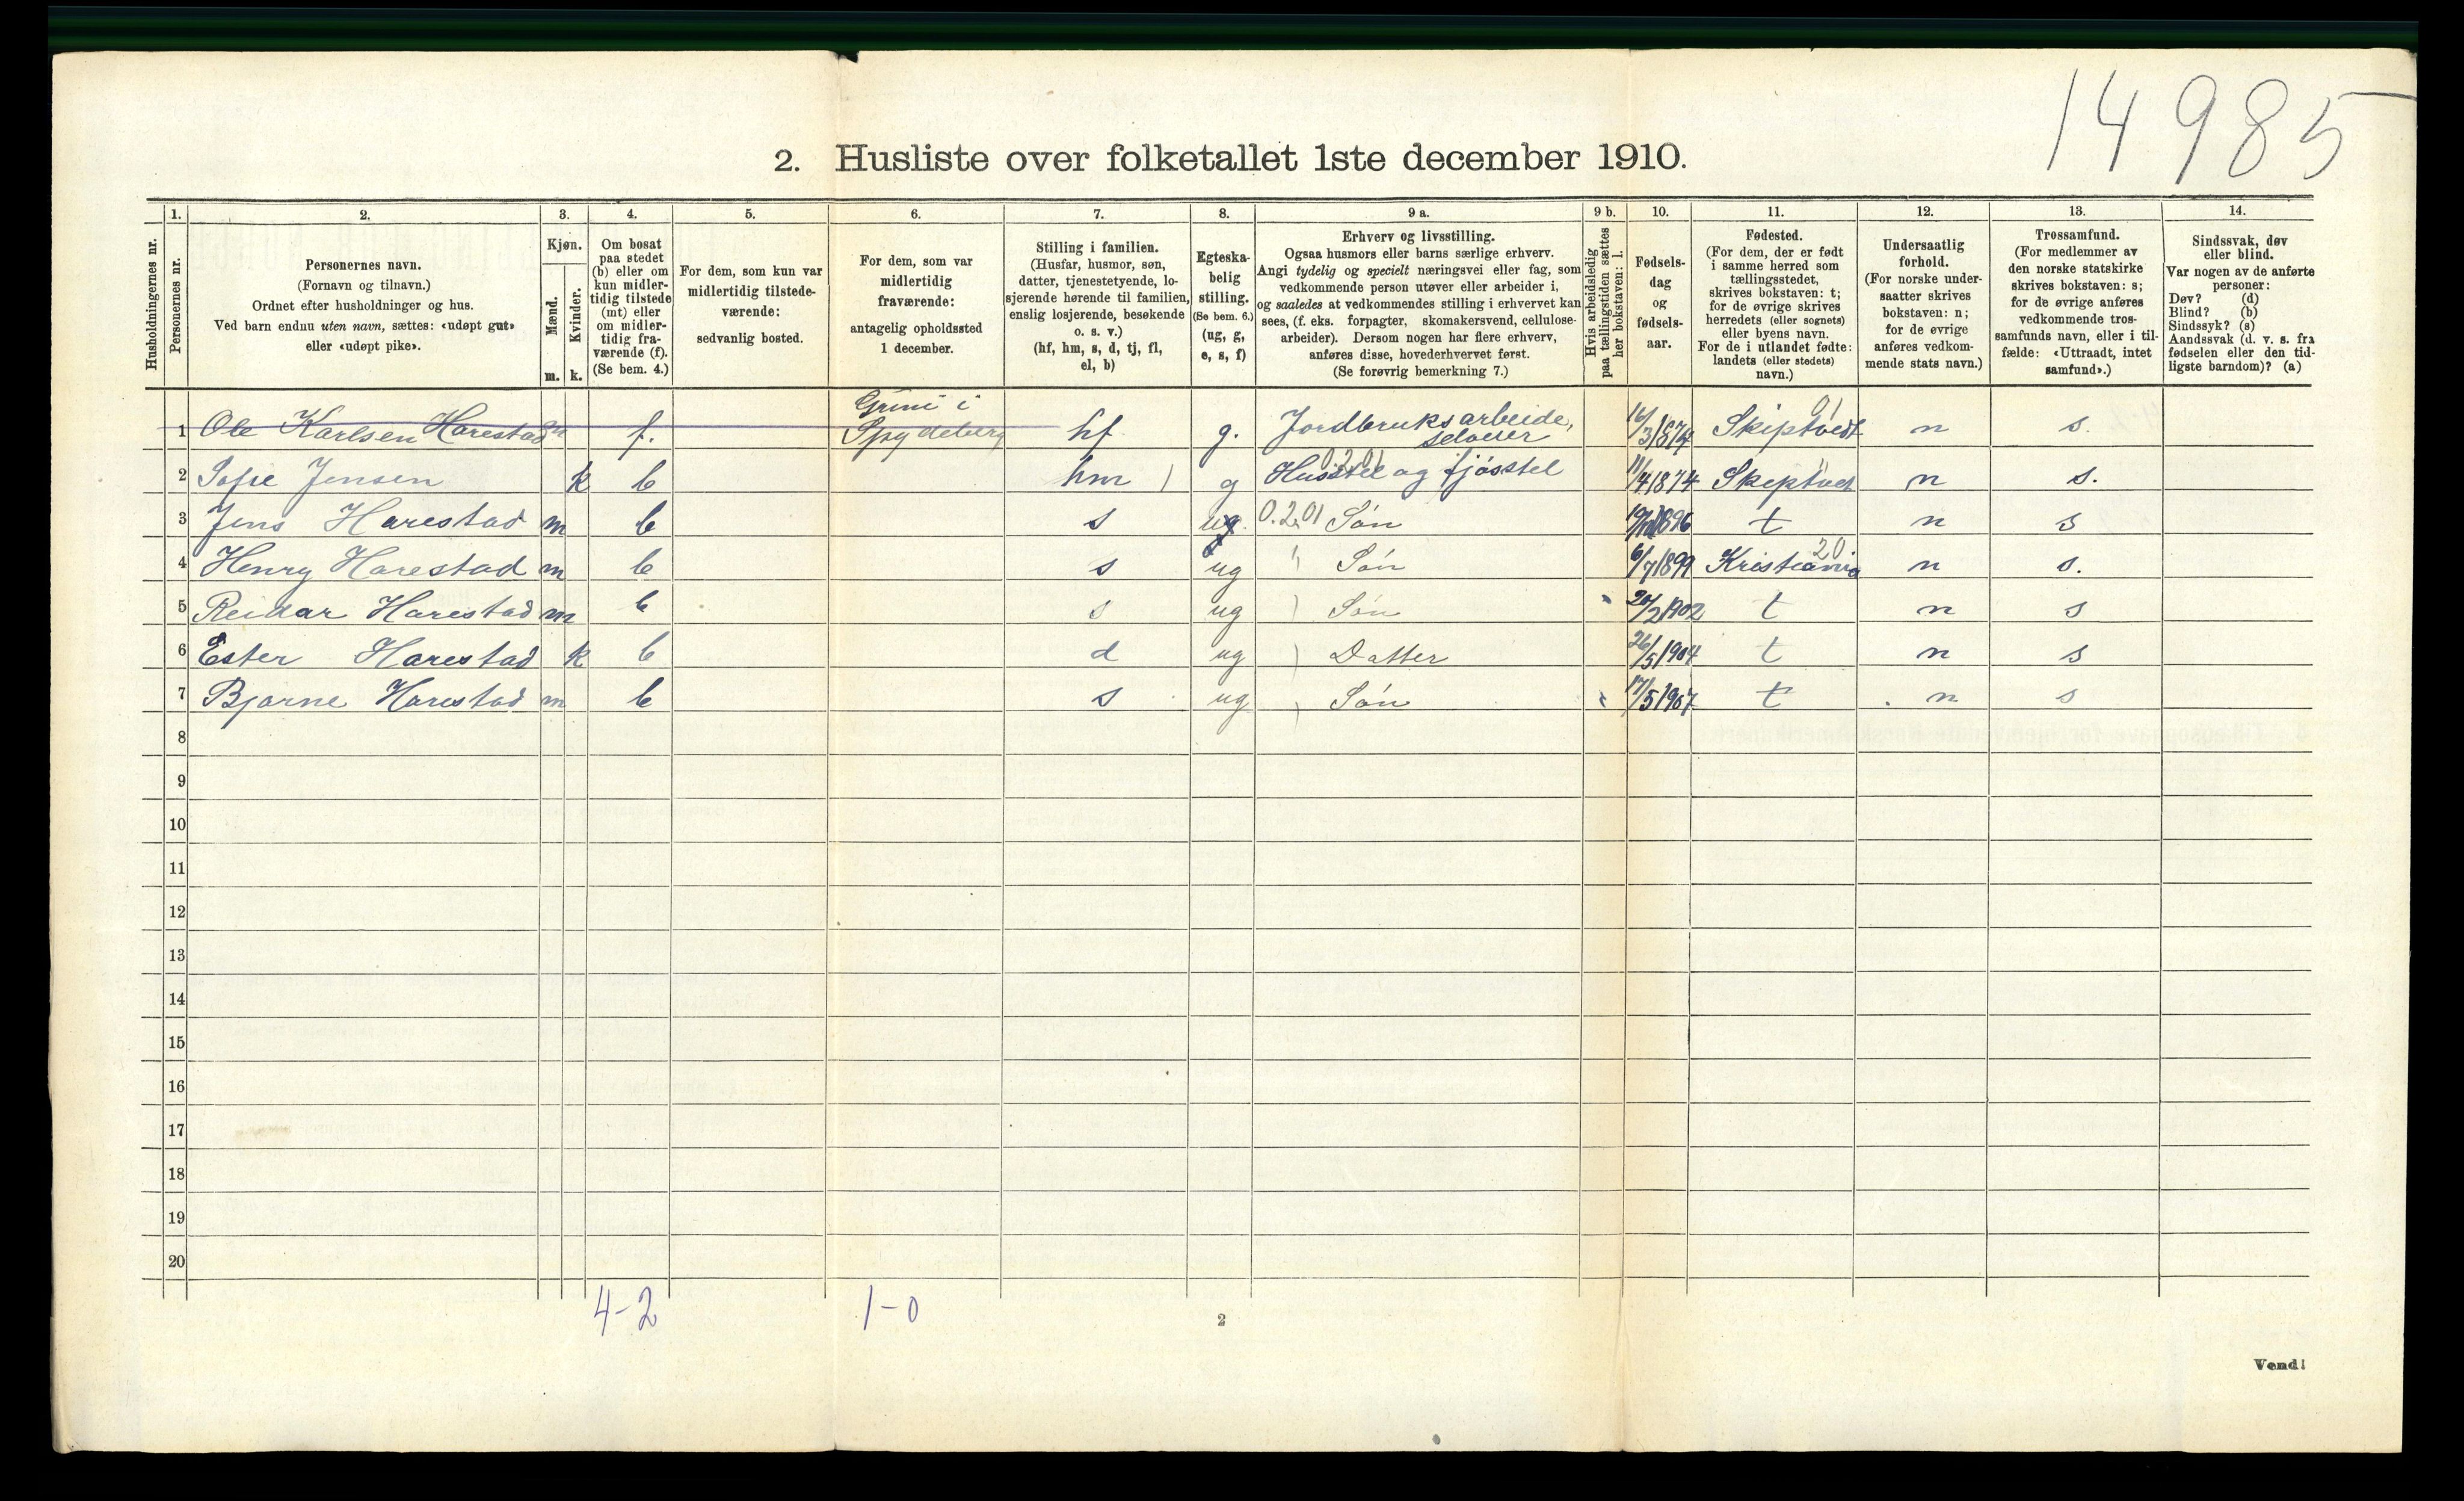 14985
2. Husliste over folketallet 1ste december 1910.
Husholdningernes nr.
1.
Personernes nr.
2.
Personernes navn.
(Fornavn og tilnavn.)
Ordnet efter husholdninger og hus.
Ved barn endnu uten navn, sættes: «udøpt gut»
eller «udøpt pike».
3.
Kjøn.
Mænd.
Kvinder.
m. k.
4.
Om bosat
paa stedet
(b) eller om
kun midler-
tidig tilstede
(mt) eller
om midler-
tidig fra-
værende (f).
(Se bem. 4.)
5.
For dem, som kun var
midlertidig tilstede-
værende:
sedvanlig bosted.
6.
For dem, som var
midlertidig
fraværende:
antagelig opholdssted
1 december.
7.
Stilling i familien.
(Husfar, husmor, søn,
datter, tjenestetyende, lo-
sjerende hørende til familien,
enslig losjerende, besøkende
o. s. v.)
(hf, hm, s, d, tj, fl,
el, b)
8.
Egteska-
belig
stilling.
(Se bem. 6.)
(ug, g,
e, s, f)
9 a.
Erhverv og livsstilling.
Ogsaa husmors eller barns særlige erhverv.
Angi tydelig og specielt næringsvei eller fag, som
vedkommende person utøver eller arbeider i,
og saaledes at vedkommendes stilling i erhvervet kan
sees, (f. eks. forpagter, skomakersvend, cellulose-
arbeider). Dersom nogen har flere erhverv,
anføres disse, hovederhvervet først.
(Se forøvrig bemerkning 7.)
9 b.
Hvis arbeidsledig
paa tællingstiden sættes
her bokstaven: l.
10.
Fødsels-
dag
og
fødsels-
aar.
11.
Fødested.
(For dem, der er født
i samme herred som
tællingsstedet,
skrives bokstaven: t;
for de øvrige skrives
herredets (eller sognets)
eller byens navn.
For de i utlandet fødte:
landets (eller stedets)
navn.)
12.
Undersaatlig
forhold.
(For norske under-
saatter skrives
bokstaven: n;
for de øvrige
anføres vedkom-
mende stats navn.)
13.
Trossamfund.
(For medlemmer av
den norske statskirke
skrives bokstaven: s;
for de øvrige anføres
vedkommende tros-
samfunds navn, eller i til-
fælde: «Uttraadt, intet
samfund».)
14.
Sindssvak, døv
eller blind.
Var nogen av de anførte
personer:
Døv? (d)
Blind? (b)
Sindssyk? (s)
Aandssvak (d. v. s. fra
fødselen eller den tid-
ligste barndom)? (a)
1 Ole Karlsen Harestad m f. Grini i Spydeberg hf g. Jordbruksarbeide, selveier 16/3 1874 Skiptvedt 01 n s.
2 Sofie Jensen k b hm g Husstel og fjøsstel 11/4 1874 Skiptvet " n s.
3 Jens Harestad m b s ug 0.2.01 Søn 1896 t n s
4 Henry Harestad m b s ug " Søn 6/7 1899 Kristiania 20 n s.
5 Reidar Harestad m b s ug Søn 20/2 1902 t n s
6 Ester Harestad k b d ug Datter 26/5 1904 t n s
7 Bjarne Harestad m b s ug Søn 17/5 1907 t n s
8
9
10
11
12
13
14
15
16
17
18
19
20
4-2 1-0
2
Vend!